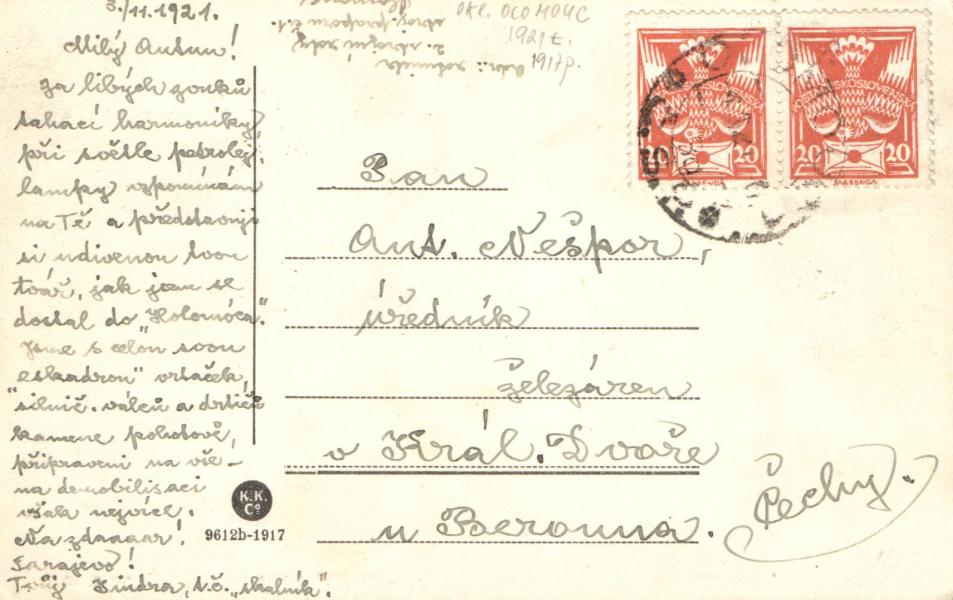 3./11.1921.
Milý Antun!
za libých zvuků
tahací harmoniky,
při světle petrolej.
lampy vzpomínám
na Tě a představuji
si udivenou tvou
tvář, jak jsem se
dostal do „Holomóca."
Jsme s celou svou
„eskadrou" vrtaček,
silnič. válců a drtičů
kamene pohotově,
připraveni na vše –
na demobilisaci
však nejvíce!
Na zdaaaar!
Sarajevo!
Tvůj Jindra, t.č. „skalník".
Adr.: rotmistr
2. strojní roty
okr. OLOMOUC
1921 t.
1917 p.
Pan
Ant. Nešpor,
úředník
železáren
v Král. Dvoře
u Berouna.
Čechy.
K.K.
Cº
9612b-1917
ČESKOSLOVENSKÁ
20 20
20 20